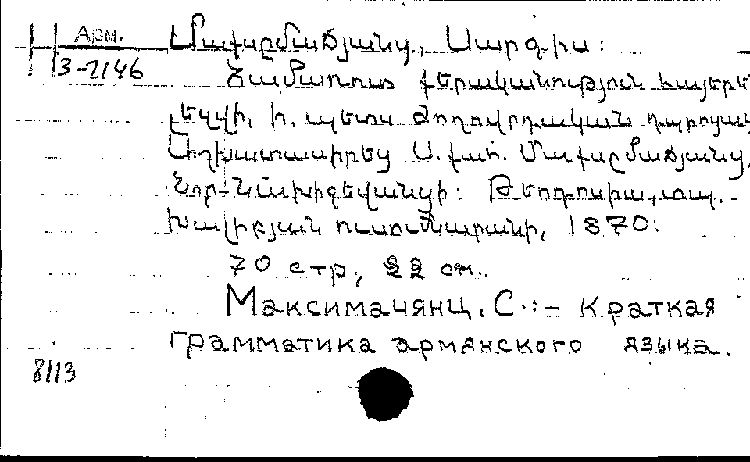 Арм.
3-2146
Սարգիս:
Համառօտ քերականութիւն հայերէ
լեզվի, ի պետս ժողովրդական դպրոցաց
Աշխատասիրեց Ս. քահ.
Նոր-Նախիջեվանցի: Թէոդոսիա, տպ.
Խալիբյան ուսումնարանի, 1870:
70 стр, 22 см.
Максимачянц. С.:- Краткая
грамматика армянского языка.
8113